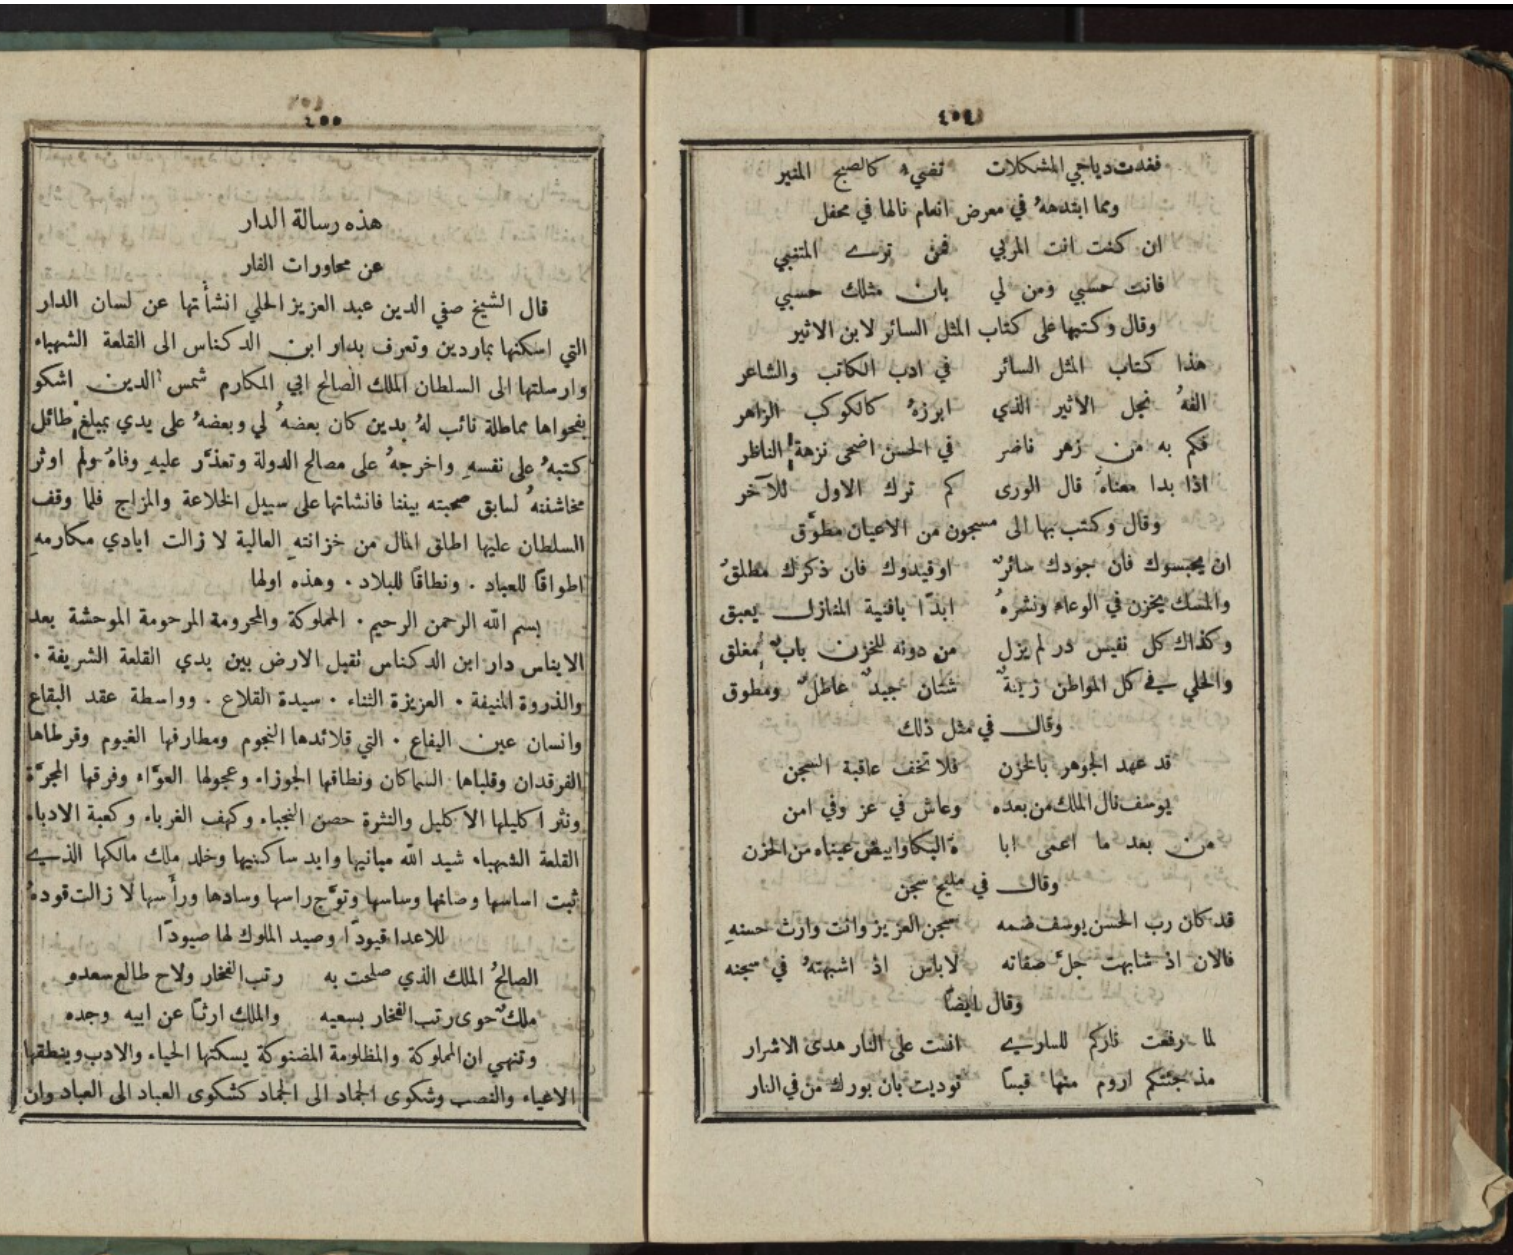 ٤٥٤
فغدت دياجي المشكلات تضيء كالصبح المنير
ومما ابتدههُ في معرض انعام نالها في محفل
ان كنت انت المربي فمن ترے المتنبي
فانت حسبي ومن لي بان مثلك حسبي
وقال وكتبها على كتاب المثل السائر لابن الاثير
هذا كتاب المثل السائر في ادب الكاتب والشاعر
الفهُ نجل الاثير الذي ابرزهُ كالكوكب الزاهر
فكم به من زهر ناضر في الحسن اضحى نزهة الناظر
اذا بدا معناهُ قال الورى كم ترك الاول للآخر
وقال وكتب بها الى مسجون من الاعيان مطوَّق
ان يحبسوك فان جودك سائرٌ او قيدوك فان ذكرك مطلقُ
والمسك يخزن في الوعاء ونشرهُ ابدًا بافنية المنازل يعبق
وكذاك كل نفيس در لم يزل من دونه للخزن بابٌ مغلق
والحلي في كل المواطن زينةٌ شتان جيدٌ عاطلٌ ومطوق
وقال في مثل ذلك
قد عهد الجوهر بالخزن فلا تخف عاقبة السجن
يوسف نال الملك من بعده وعاش في عز وفي امن
من بعد ما اعمى ابا ة البكا وابيض عيناه من الحزن
وقال في مليح سجن
قد كان رب الحسن يوسف ضمه سجن العزيز وانت وارث حسنهِ
فالان اذ شابهت جلَّ صفاته لاباس اذ اشبهتهُ في سجنه
وقال ايضًا
لما رفعت ناركم للساريے انست على النار هدى الاشرار
مذ جئتكم اروم منها قبسًا نوديت بان بورك من في النار
٤٥٥
هذه رسالة الدار
عن محاورات الفار
قال الشيخ صفي الدين عبد العزيز الحلي انشأتها عن لسان الدار
التي اسكنها بماردين وتعرف بدار ابن الدكناس الى القلعة الشهباء
وارسلتها الى السلطان الملك الصالح ابي المكارم شمس الدين اشكو
بفحواها مماطلة نائب لهُ بدين كان بعضهُ لي وبعضهُ على يدي بمبلغ طائل
كتبهُ على نفسهِ واخرجهُ على مصالح الدولة وتعذَّر عليهِ وفاهُ ولم اوثر
مخاشنتهُ لسابق صحبته بيننا فانشاتها على سبيل الخلاعة والمزاج فلما وقف
السلطان عليها اطلق المال من خزانتهِ العالية لا زالت ايادي مكارمهِ
اطواقًا للعباد . ونطاقًا للبلاد . وهذه اولها
بسم الله الرحمن الرحيم . المملوكة والمحرومة المرحومة الموحشة بعد
الايناس دار ابن الدكناس تقبل الارض بين يدي القلعة الشريفة .
والذروة المنيفة . العزيزة الثناء . سيدة القلاع . وواسطة عقد البقاع
وانسان عين اليفاع . التي قلائدها النجوم ومطارفها الغيوم وقرطاها
الفرقدان وقلباها السماكان ونطاقها الجوزاء وحجولها العوَّاء وفرقها المجرَّة
ونثر اكليلها الاكليل والنثرة حصن النجباء وكهف الغرباء وكعبة الادباء
القلعة الشهباء شيد الله مبانيها وابد ساكنيها وخلد ملك مالكها الذيے
ثبت اساسها وصانها وساسها وتوَّج راسها وسادها ورأسها لا زالت قودهُ
للاعدا قيودًا وصيد الملوك لها صيودًا
الصالحُ الملك الذي صلحت به رتب الفخار ولاح طالع سعده
ملكٌ حوى رتب الفخار بسعيه والملك ارثًا عن ابيه وجده
وتنهي ان المملوكة والمظلومة المضنوكة يسكتها الحياء والادب وينطقها
الاعياء والنصب وشكوى الجماد الى الجماد كشكوى العباد الى العباد وان